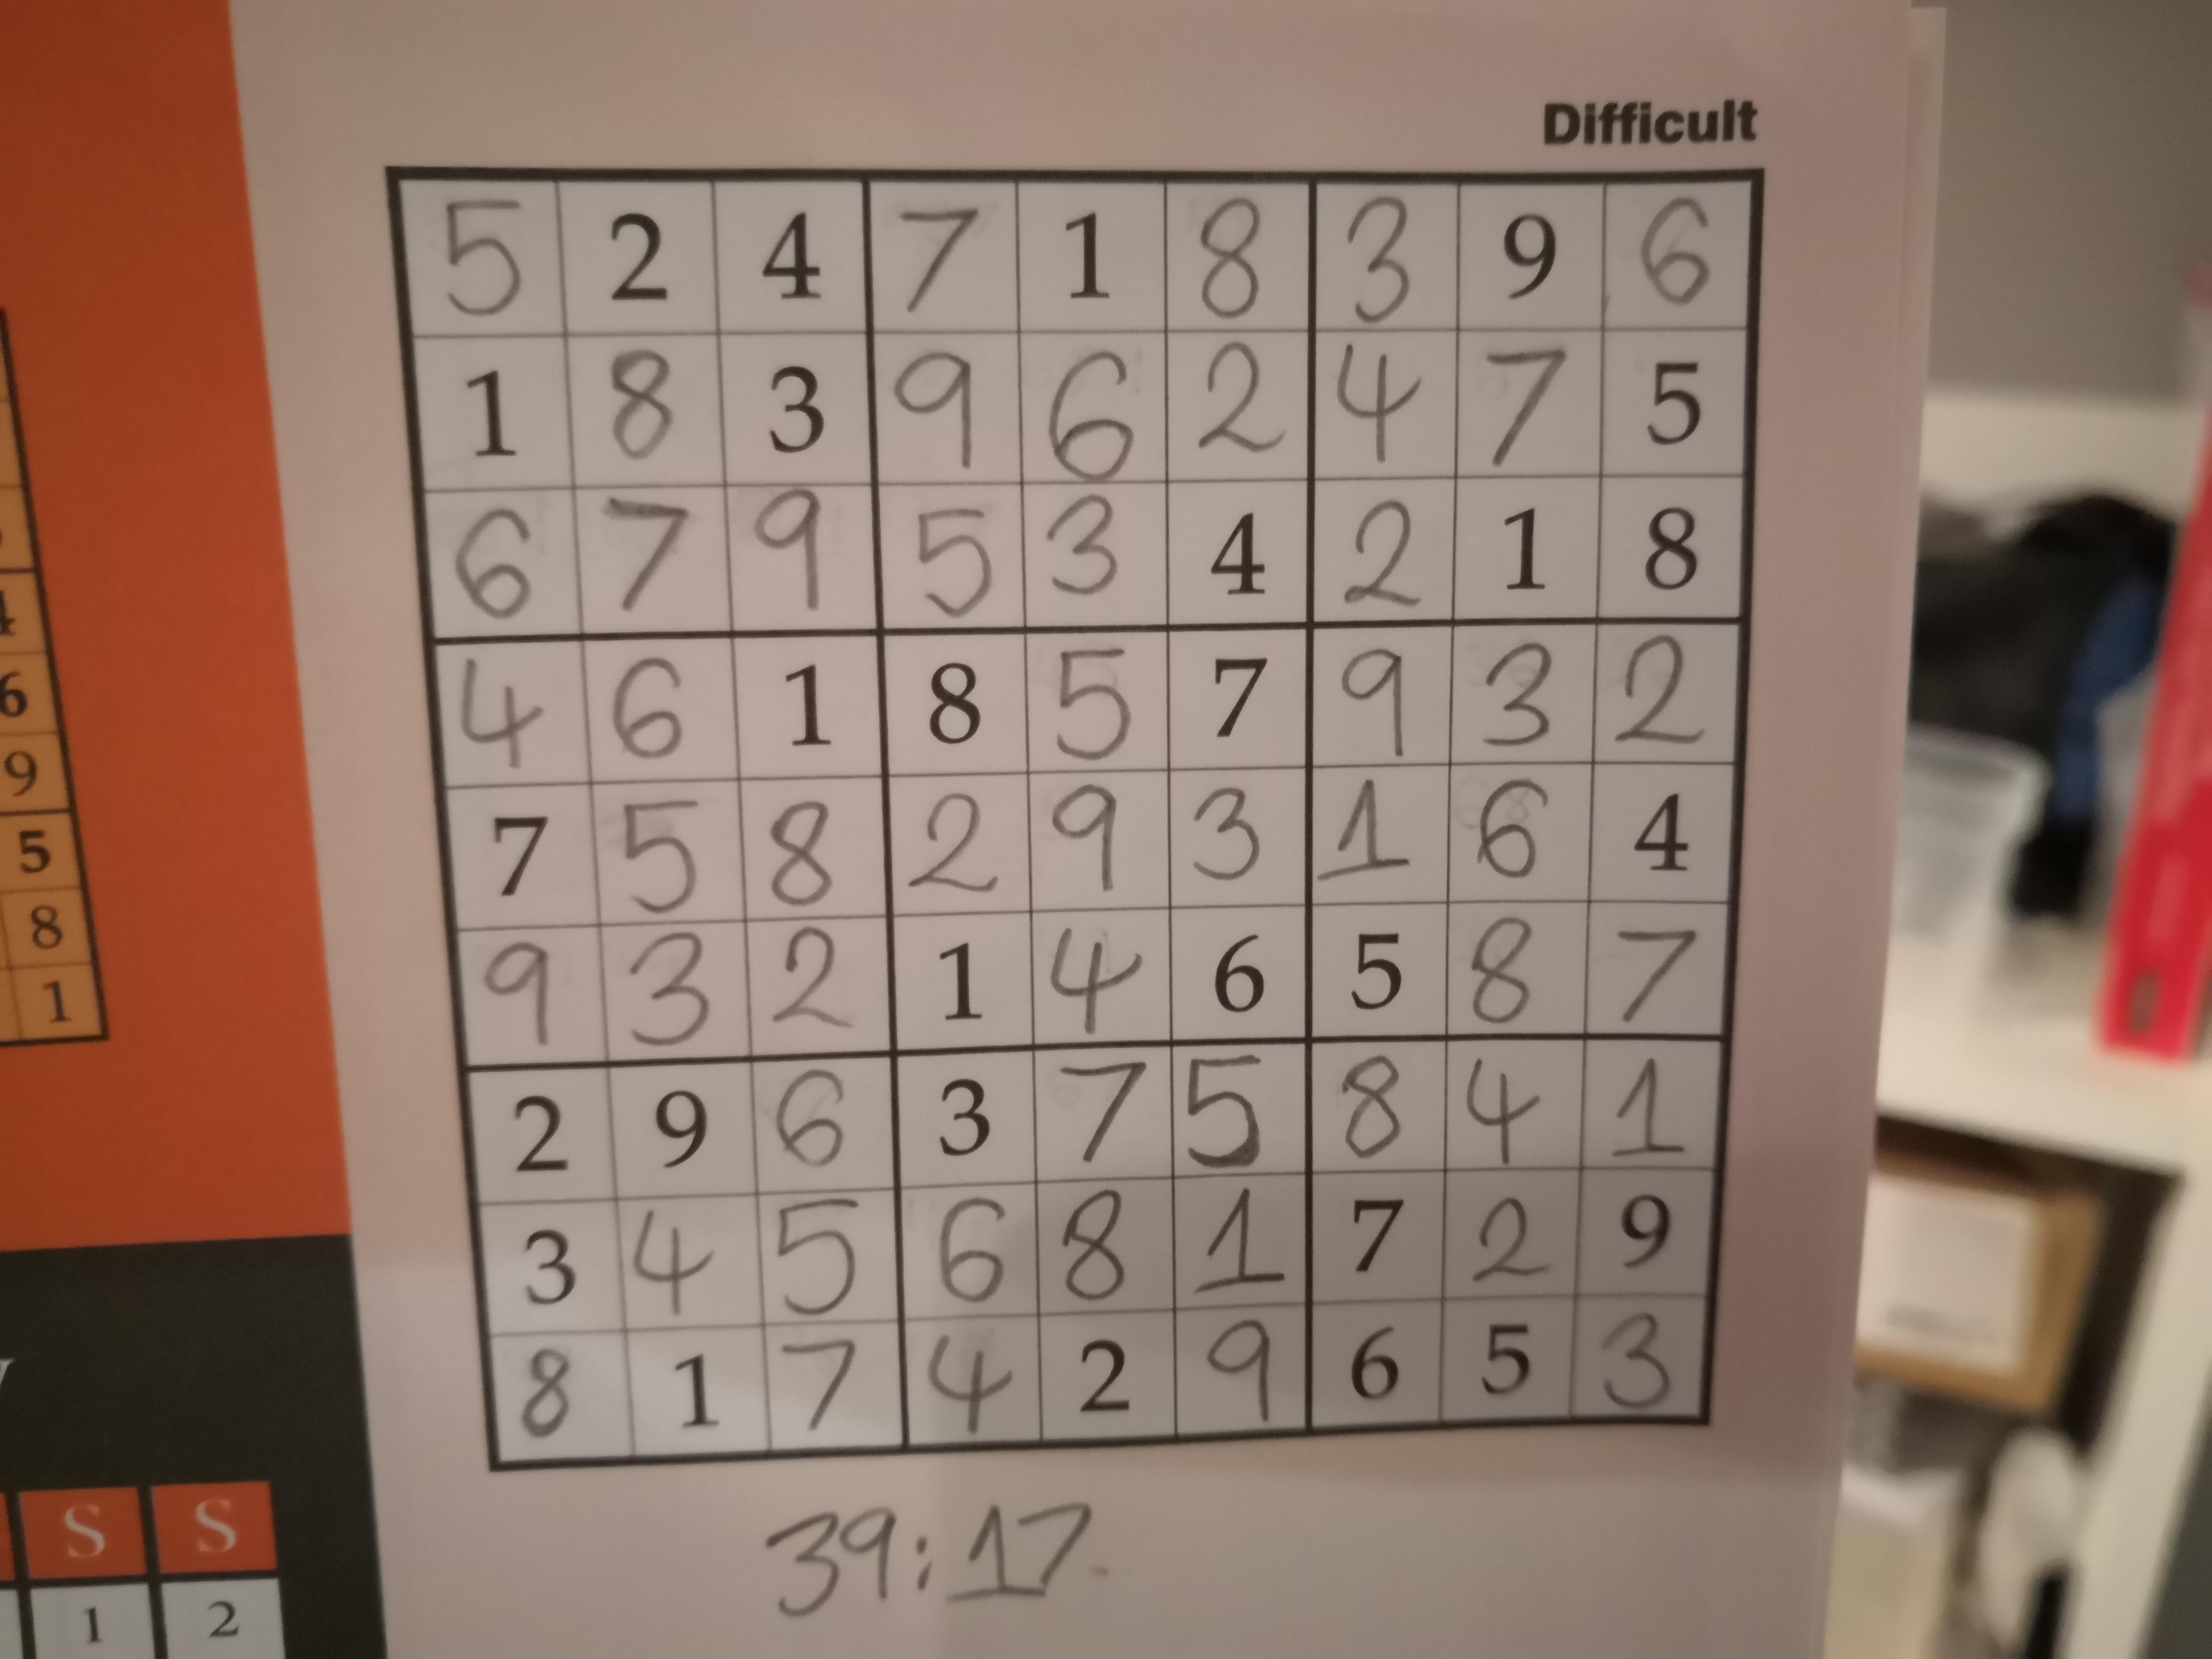 Difficult
5 2 4 7 1 8 3 9 6
1 8 3 9 6 2 4 7 5
6 7 9 5 3 4 2 1 8
4 6 1 8 5 7 9 3 2
7 5 8 2 9 3 1 6 4
9 3 2 1 4 6 5 8 7
2 9 6 3 7 5 8 4 1
3 4 5 6 8 1 7 2 9
8 1 7 4 2 9 6 5 3
39:17.
4
6
9
5
8
1
S S
1 2